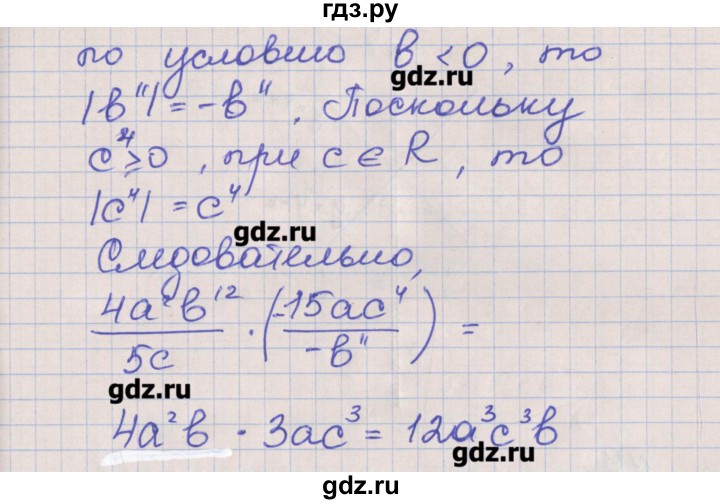 гдз.ру
по условию b < 0, то
gdz.ru
|b¹¹| = -b¹¹. Поскольку
c⁴ ≥ 0, при c ∈ R, то
|c⁴| = c⁴
gdz.ru
Следовательно,
4a²b¹²/5c · (-15ac⁴/-b¹¹) =
gdz.ru
4a²b · 3ac³ = 12a³c³b
gdz.ru
gdz.ru